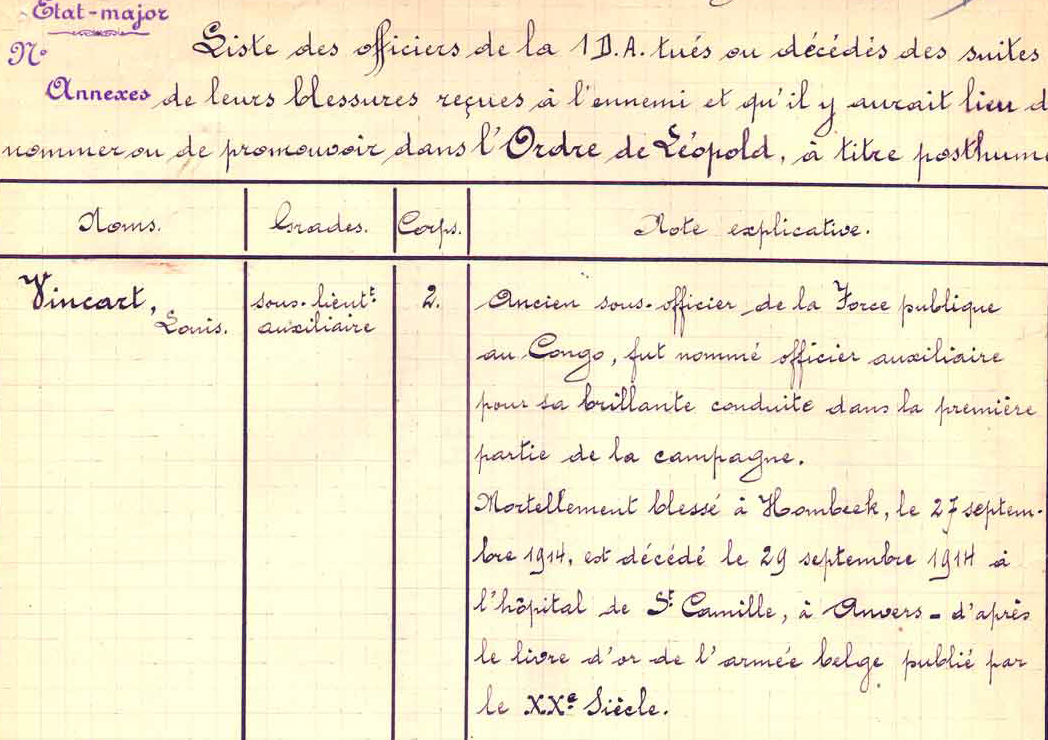 Etat-major
N°
Liste des officiers de la 1 D.A. tués ou décédés des suites
Annexes
de leurs blessures reçues à l'ennemi et qu'il y aurait lieu d
nommer ou de promouvoir dans l'Ordre de Léopold, à titre posthume
Noms. Grades. Corps. Note explicative.
Vincart, sous-lieutt 2. Ancien sous-officier de la Force publique
Louis. auxiliaire
au Congo, fut nommé officier auxiliaire
pour sa brillante conduite dans la première
partie de la campagne.
Mortellement blessé à Hombeek, le 27 septem-
bre 1914, est décédé le 29 septembre 1914 à
l'hôpital de St Camille, à Anvers - d'après
le livre d'or de l'armée belge publié par
le XXe Siècle.